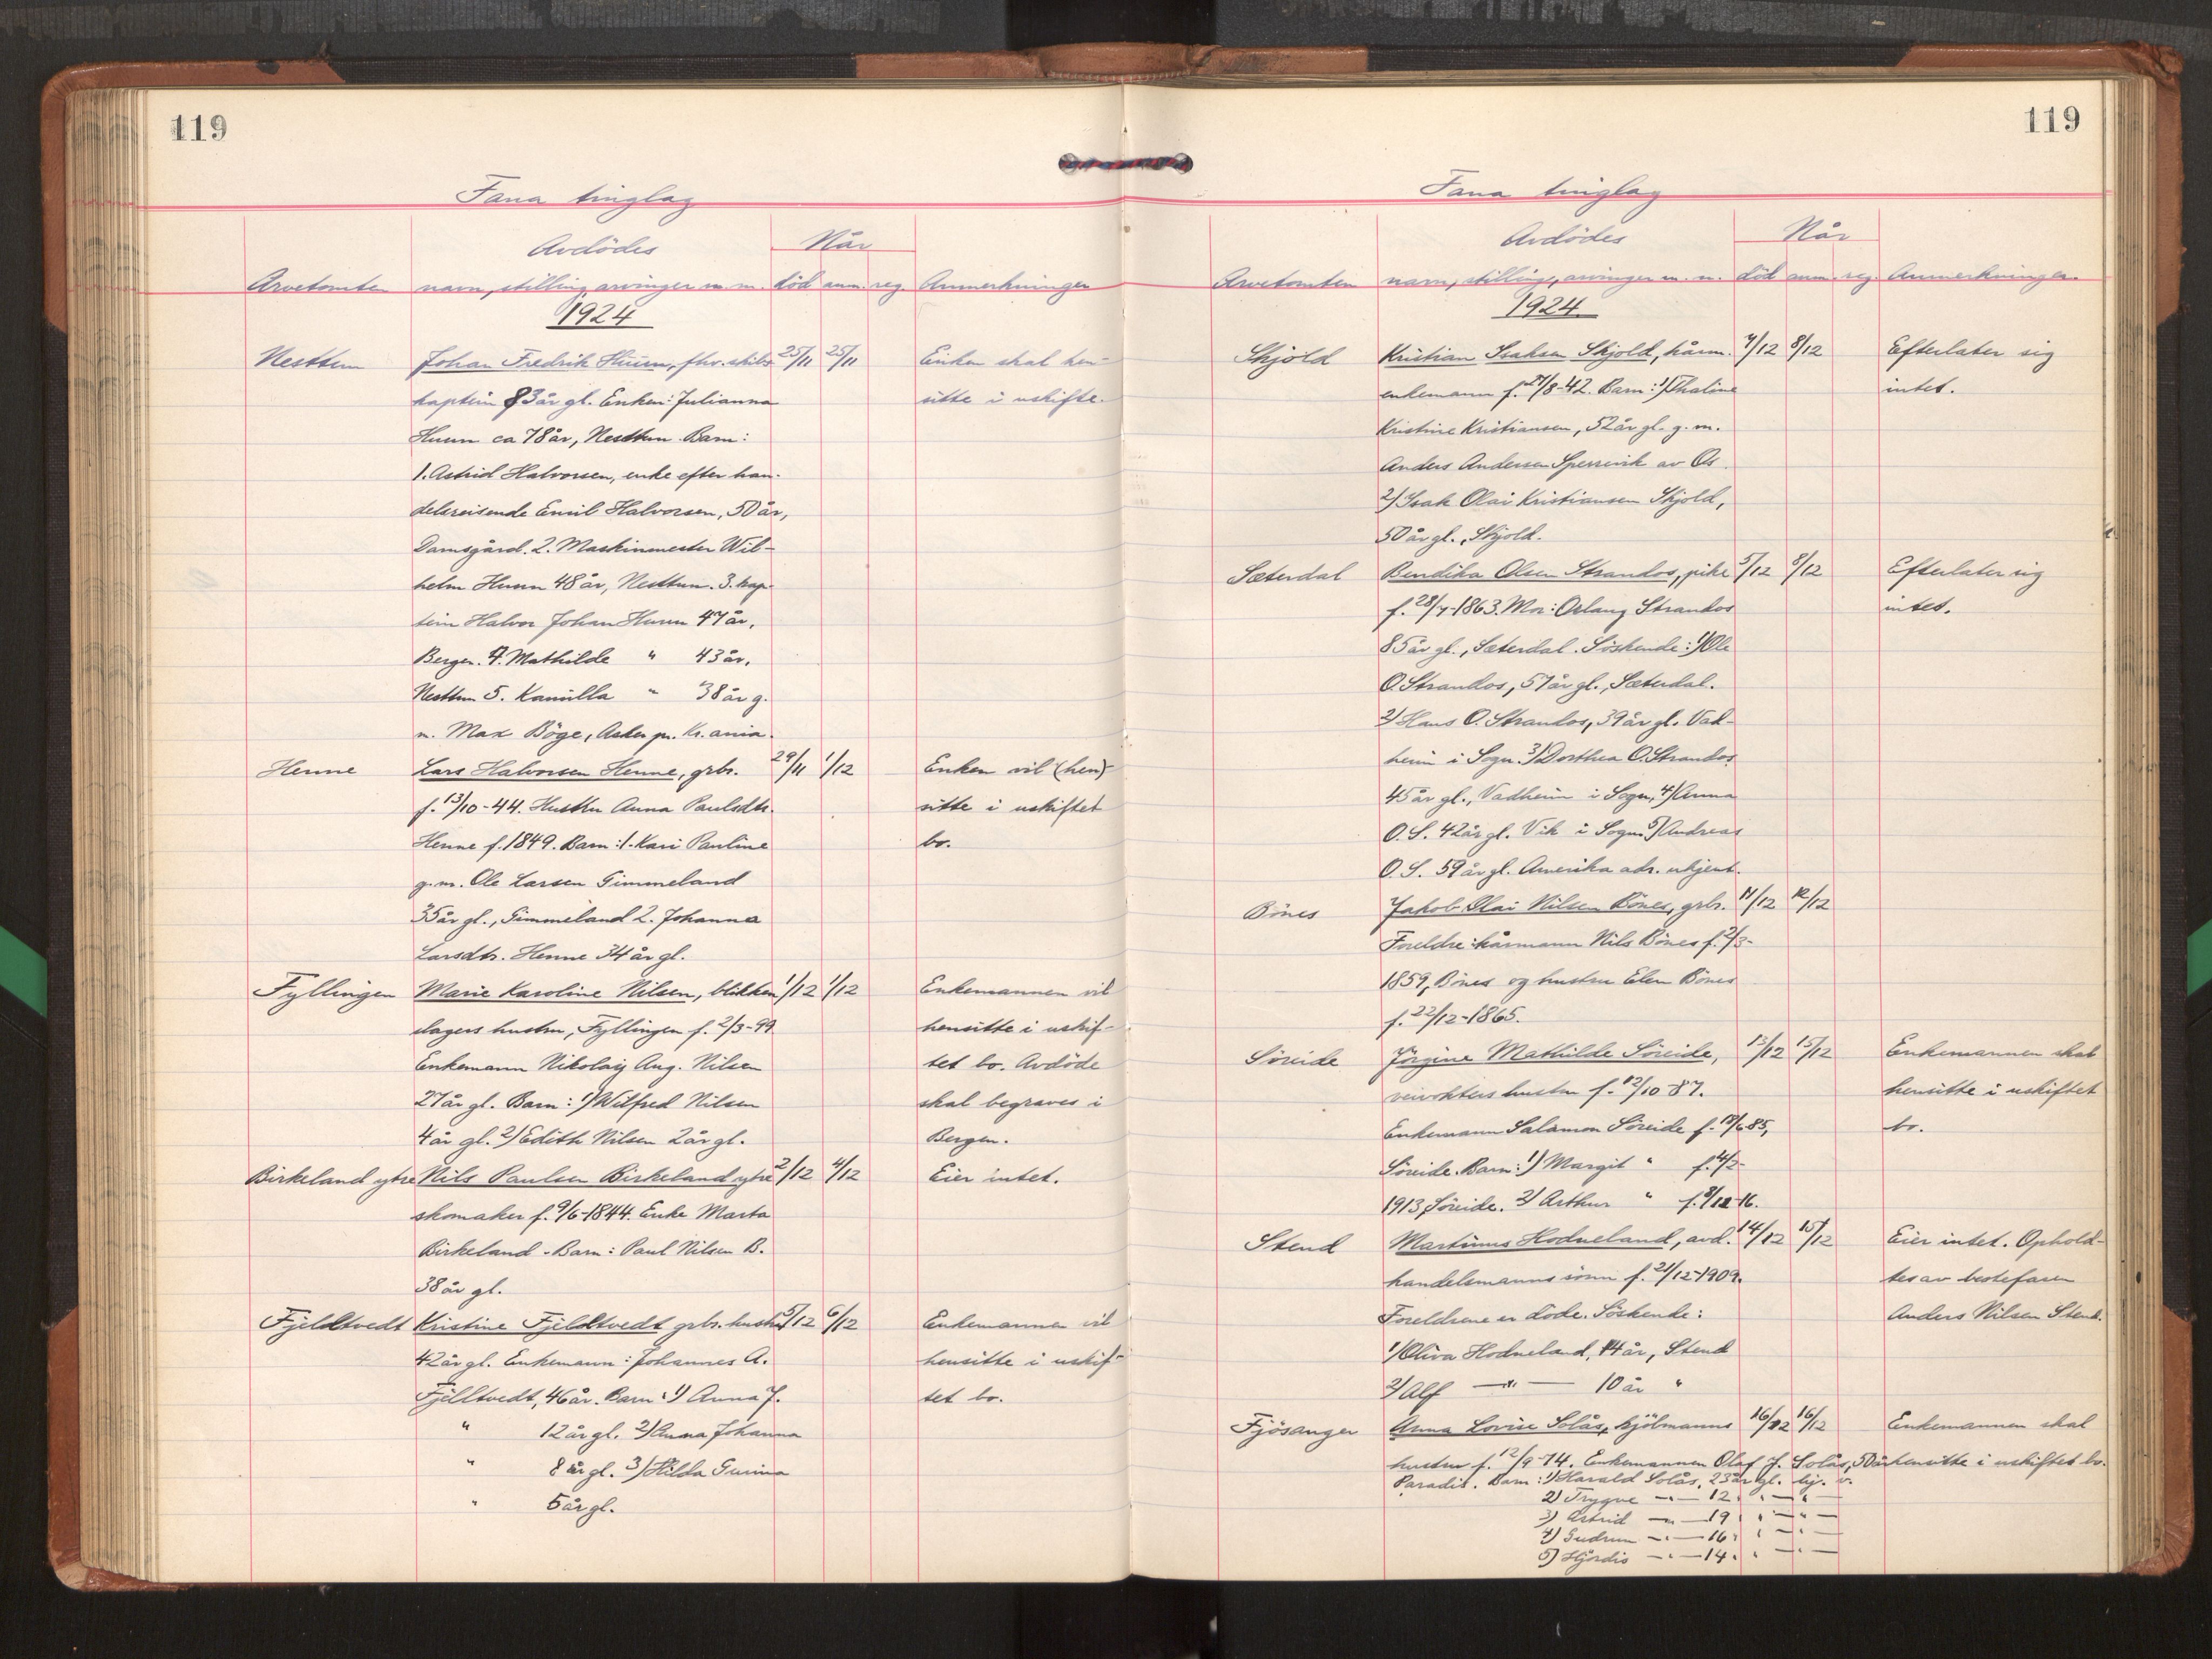 119
Fana tinglag
Avdödes
Når
Arvetomten navn, stilling, arvinger m. m. död anm. reg. Anmerkninger
1924
Nesttun Johan Fredrik Huun, fhv. skibs- 25/11 25/11 Enken skal hen-
kaptein 83 år gl. Enken: Julianna sitte i uskifte.
Huun ca 78 år, Nesttun. Barn:
1. Astrid Halvorsen, enke efter han-
delsreisende Emil Halvorsen, 50 år,
Damsgård. 2. Maskinmester Wil-
helm Huun 48 år, Nesttun. 3. kap-
tein Halvor Johan Huun 47 år,
Bergen. 4. Mathilde " 43 år,
Nesttun 5. Kamilla " 38 år g.
m. Max Böge, Asker pr. Kr.ania.
Henne Lars Halvorsen Henne, grbr. 29/11 1/12 Enken vil (hen)-
f. 13/10-44. Hustru Anna Paulsdtr. sitte i uskiftet
Henne f. 1849. Barn: 1. Kari Pauline bo.
g. m. Ole Larsen Gimmeland
35 år gl., Gimmeland 2. Johanna
Larsdtr. Henne 34 år gl.
Fyllingen Marie Karoline Nilsen, blikken 1/12 1/12 Enkemannen vil
slagers hustru, Fyllingen f. 2/3-99 hensitte i uskif-
Enkemann Nikolay Aug. Nilsen tet bo. Avdöde
27 år gl. Barn: 1) Wilfred Nilsen skal begraves i
4 år gl. 2) Edith Nilsen 2 år gl. Bergen.
Birkeland ytre Nils Paulsen Birkeland ytre 2/12 4/12 Eier intet.
skomaker f. 9/6-1844. Enke Marta
Birkeland - Barn: Paul Nilsen B.
38 år gl.
Fjeldtvedt Kristine Fjeldtvedt grbr. hustru 5/12 6/12 Enkemannen vil
42 år gl. Enkemann: Johannes A. hensitte i uskif-
Fjelltvedt, 46 år. Barn: 1) Anna J. tet bo.
" 12 år gl. 2) Anna Johanna
" 8 år gl. 3) Hilda Gurina
" 5 år gl.
119
Fana tinglag
Avdödes
Når
Arvetomten navn, stilling, arvinger m. m. död anm. reg. Anmerkninger.
1924
Skjold Kristian Isaksen Skjold, kårm. 7/12 8/12 Efterlater sig
enkemann f. 27/8-42. Barn: 1) Thaline intet.
Kristine Kristiansen, 52 år gl. g. m.
Anders Andersen Sperrevik av Os.
2) Isak Olai Kristiansen Skjold,
50 år gl., Skjold.
Sæterdal Bendika Olsen Strandos, pike 5/12 8/12 Efterlater sig
f. 28/7-1863. Mor: Oelang Strandos intet.
85 år gl., Sæterdal. Söskende: 1) Ole
O. Strandos, 57 år gl., Sæterdal.
2) Hans O. Strandos, 39 år gl. Vad-
heim i Sogn. 3) Dorthea O. Strandos
45 år gl., Vadheim i Sogn, 4) Anna
O. S. 42 år gl. Vik i Sogn 5) Andreas
O. S. 59 år gl. Amerika adr. ukjent.
Bönes Jakob Olai Nilsen Bönes, grbr. 11/12 12/12
Foreldre: kårmann Nils Bönes f. 2/3-
1859, Bönes og hustru Elen Bönes
f. 22/12-1865.
Söreide Jörgine Mathilde Söreide, 13/12 15/12 Enkemannen skal
veivokters hustru f. 12/10 87. hensitte i uskiftet
Enkemann Salamon Söreide f. 18/6 85, bo.
Söreide. Barn: 1) Margit " f. 4/2-
1913, Söreide. 2) Arthur " f. 8/12-16.
Stend Martinus Hodneland, avd. 14/12 15/12 Eier intet. Ophold-
handelsmanns sönn f. 21/12-1909. tes av bestefaren
Foreldrene er döde. Söskende: Anders Nilsen Stend.
1) Oliva Hodneland, 14 år, Stend
2) Alf —"— 10 år "
Fjösanger Anna Lovise Solås, kjölmanns 16/12 16/12 Enkemannen skal
hustru f. 12/9-74. Enkemannen Olaf J. Solås, 50 år hensitte i uskiftet bo.
Paradis. Barn: 1) Harald Solås, 23 år gl. hj. v.
2) Trygve —"— 12 " —"—
3) Astrid —"— 19 " —"—
4) Gudrun —"— 16 " —"—
5) Hjördis —"— 14 " —"—